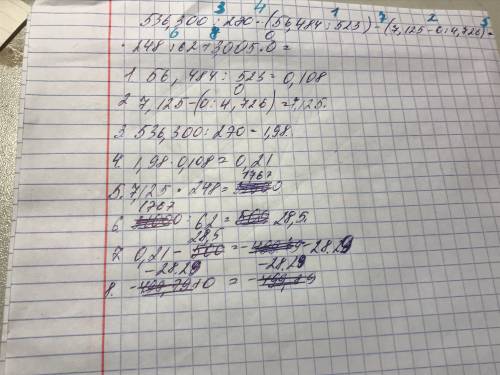 3 4 1 7 2 5
536,300 : 270 · (56,484 : 523) - (7,125 - 0 : 4,726) ·
6 8 0
· 248 : 62 + 3,005 · 0 =
1. 56,484 : 523 = 0,108
0
2. 7,125 - (0 : 4,726) = 7,125.
3. 536,300 : 270 = 1,98.
4. 1,98 · 0,108 = 0,21
1767
5. 7,125 · 248 =
1767
6. : 62 = 28,5.
28,5
7. 0,21 - = - 28.29
-28.29 -28.29
8. + 0 = -